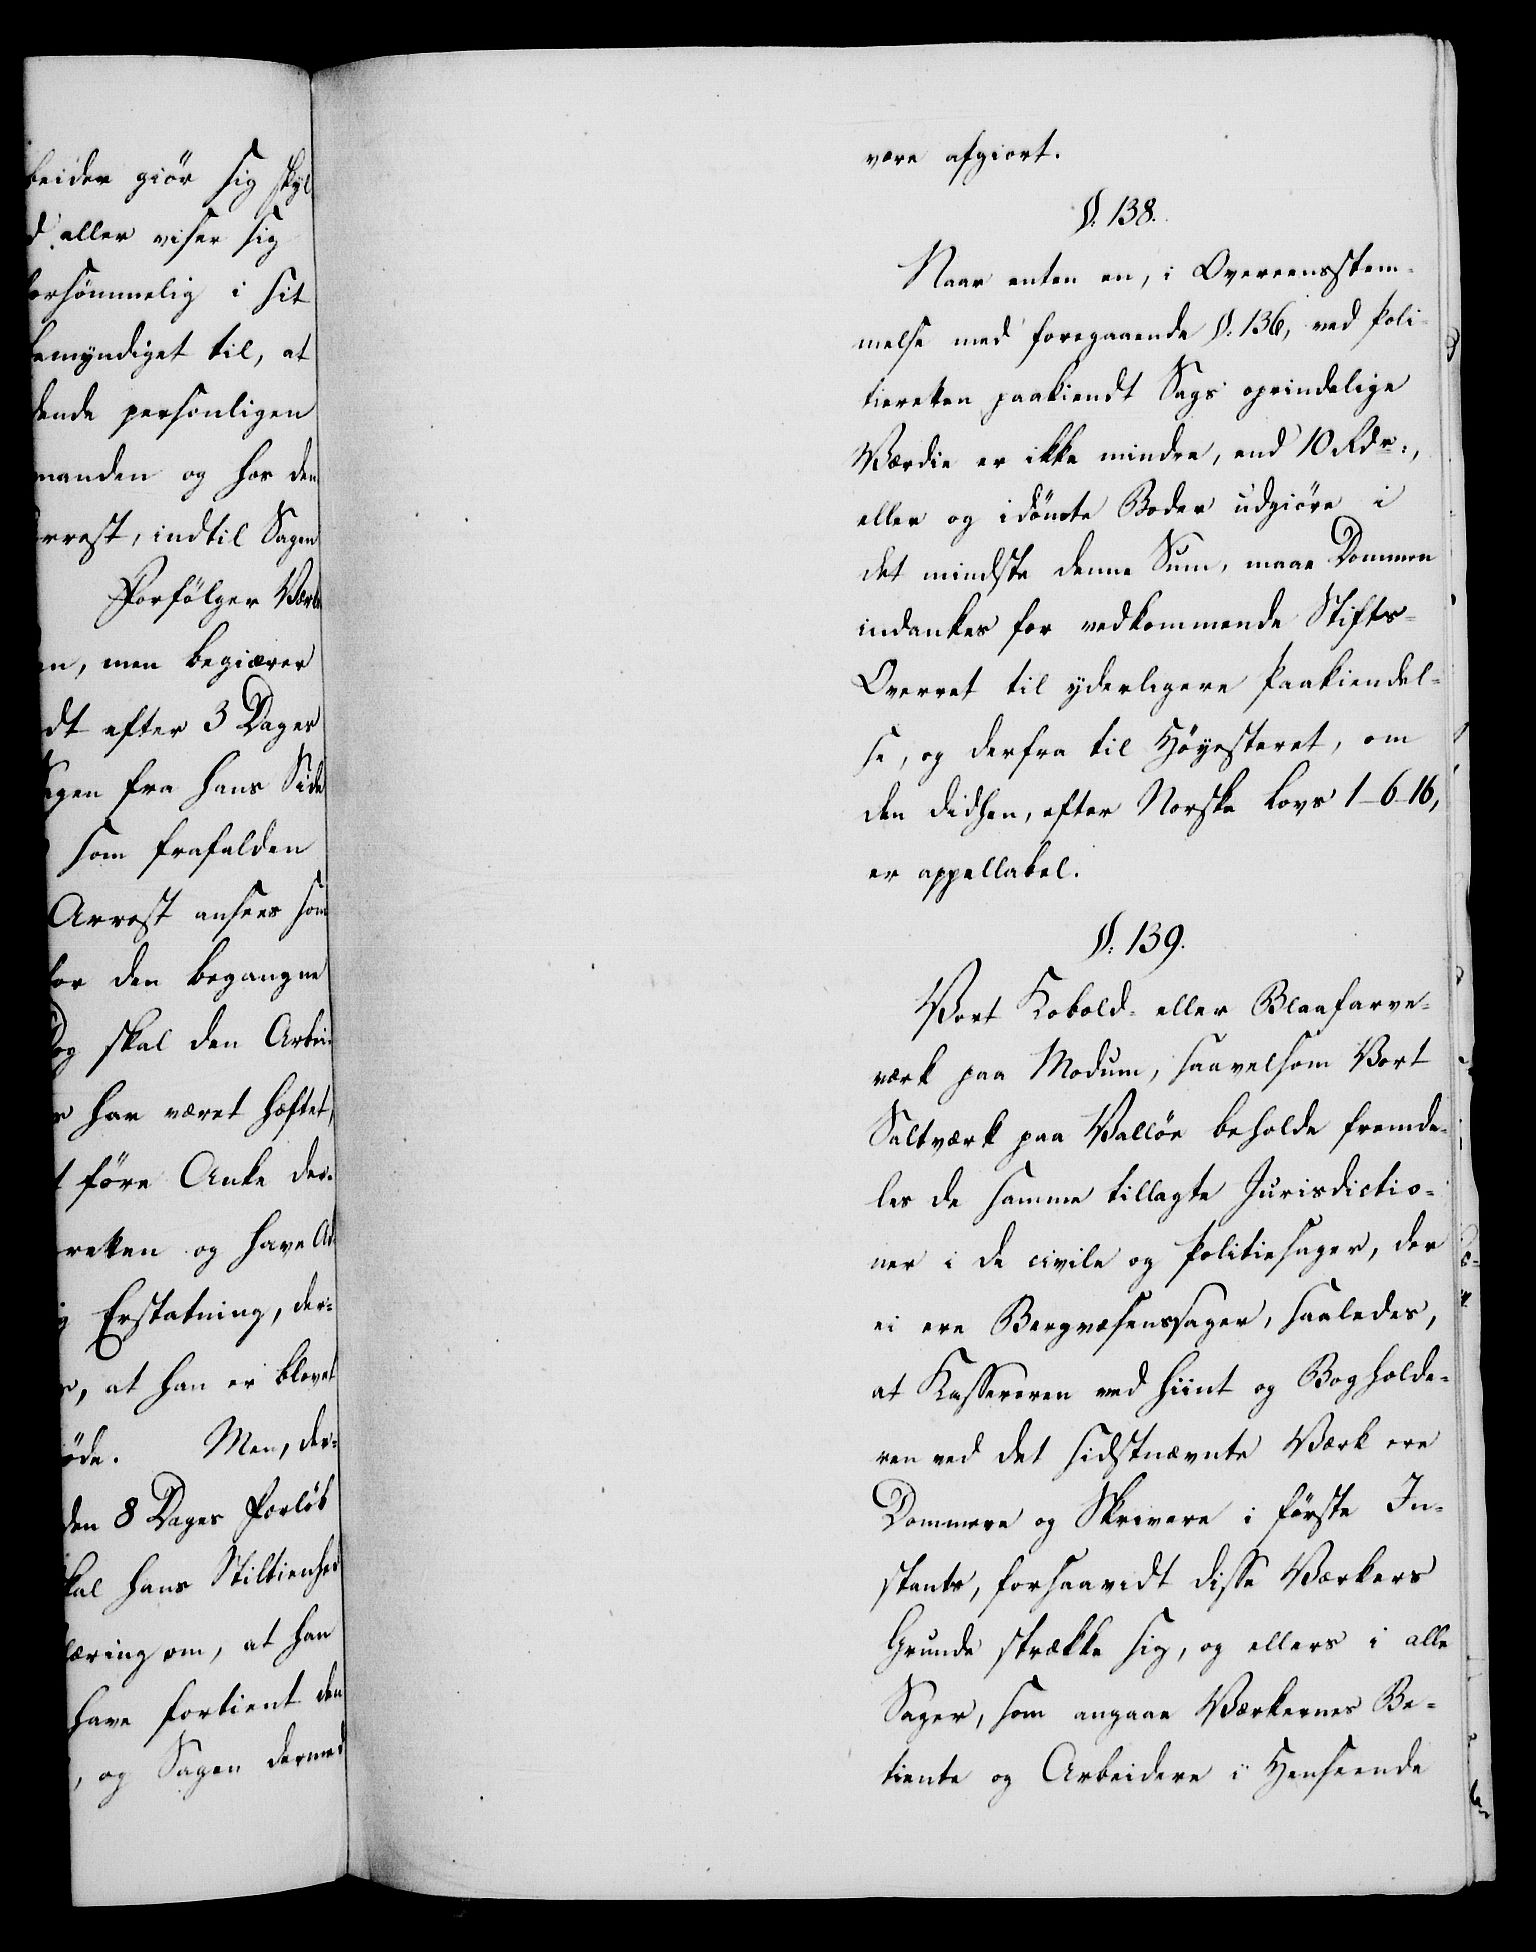 beider giör sig skyl
eller viser sig
forsömmelig i sit
bemyndiget til, at
dende personligen
manden og hos den
rrest, indtil Sagen
Forfölger Værk
en, men begiærer
dt efter 3 Dages
agen fra hans Side
som frafalden
Arrest ansees som
for den begangne
Dog skal den Arbei-
har været hæftet,
före Anke der-
retten og have Ad-
Erstatning, der-
, at han er blevet
öde. Men, der-
den 8 Dages Forlöb
skal hans Stiltienhed
læring om, at han
have fortient den
, og Sagen dermed
være afgiort.
§. 138.
Naar enten en, i Overeensstem-
melse med foregaaende §. 136, ved Poli-
tieretten paakiendt Sags oprindelige
Værdie er ikke mindre, end 10 Rdr.,
eller og idömte Boder udgiöre i
det mindste denne Sum, maae Dommen
indankes for vedkommende Stifts-
Overret til yderligere Paakiendel-
se, og derfra til Höyesteret, om
den didhen, efter Norske Lovs 1-6-16,
er appellabel.
§. 139.
Vort Kobold- eller Blaafarve-
værk paa Modum, saavelsom Vort
Saltværk paa Vallöe beholde fremde-
les de samme tillagte Jurisdictio-
ner i de civile og Politiesager, der
ei ere Bergvæsenssager, saaledes,
at Kassereren ved hiint og Bogholde-
ren ved det sidstnævnte Værk ere
Dommere og Skrivere i förste In-
stants, forsaavidt disse Værkers
Grunde strække sig, og ellers i alle
Sager, som angaae Værkernes Be-
tiente og Arbeidere i Henseende